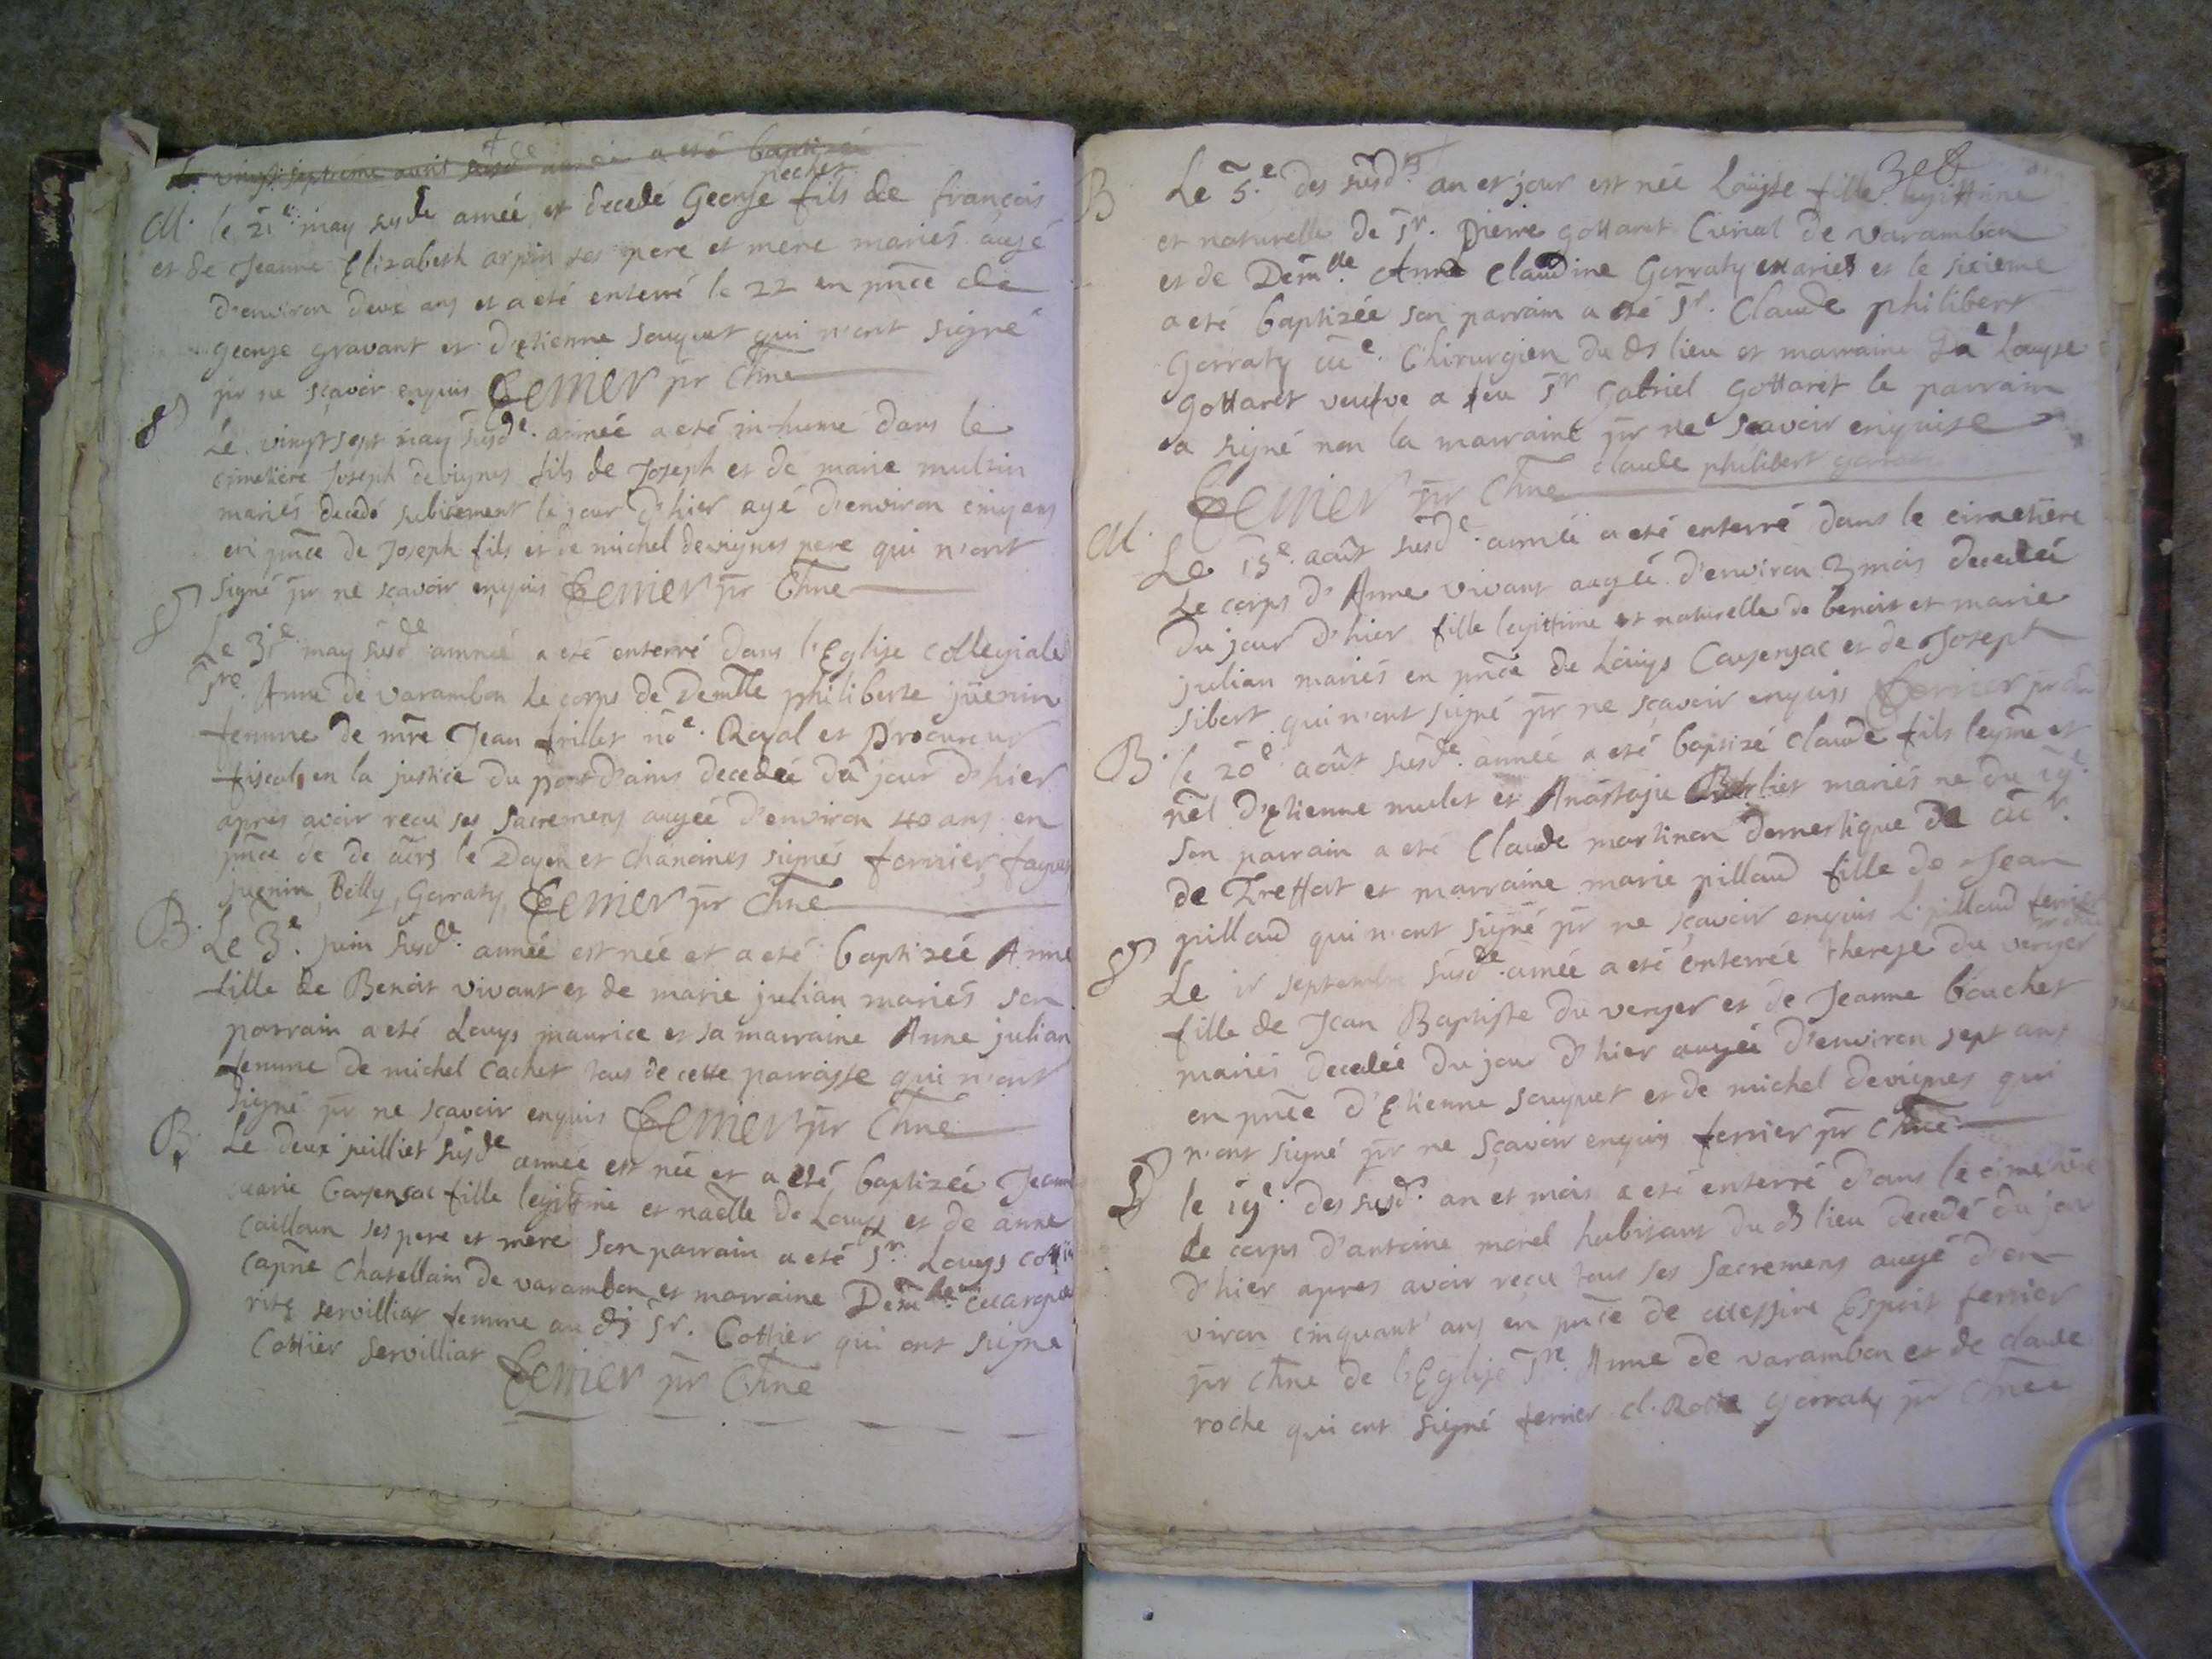 Le vingt septieme avril susde année a eté baptizée
pechet
M. le 21e may susde année et decedé George fils de françois
et de Jeanne Elizabeth arpin ses pere et mere mariés augé
d'environ deux ans et a eté enterré le 22 en pnce de
George gravant et d'Etienne Souquet qui n'ont signé
pr ne sçavoir enquis ferrier pr Chne
Le vingt sept may susde. année a eté inhume dans le
cimetiere Joseph devignes fils de Joseph et de marie multin
mariés decedé subitement le jour d'hier agé d'environ cinq ans
en pnce de Joseph fils et de michel devignes pere qui n'ont
signé pr ne sçavoir enquis ferrier pr Chne
Le 31e may susde année a eté enterré dans l'Eglise collegiale
Ste. Anne de varambon le corps de Demlle philiberte juenin
femme de mre Jean frillet noe. Royal et Procureur
fiscal en la justice du pont d'ains decedée du jour d'hier
apres avoir recu ses sacremens augée d'environ 40 ans en
pnce de le Doyen et chanoines signés ferrier, fayet
juenin, Belly, Garraty, ferrier pr Chne
B. Le 3e. juin susde. année est née et a eté baptizée Anne
fille de Benoit vivant et de marie julian mariés son
parrain a eté Louys maurice et sa marraine Anne julian
femme de michel Cachet tous de cette parroisse qui n'ont
signé pr ne sçavoir enquis ferrier pr Chne
B. Le deux juilliet susde année est née et a eté baptizée Jeanne
marie Cayensac fille legitime et naélle de Louys et de anne
cailloun ses pere et mere son parrain a eté Sr. Louys cottier
capne Chatellain de varambon et marraine Demlle. margue
rite servilliat femme au dt Sr. Cottier qui ont signe
Cottier servilliat ferrier pr Chne
B Le 5.e des susds an et jour est née Louyse fille legittime
et naturelle de Sr. Pierre gottaret Curial de varambon
et de Demlle. Anne Claudine Garraty mariés et le sixieme
a eté baptizée son parrain a eté Sr. Claude philibert
Garraty me. Chirurgien du dt lieu et marraine Dae Louyse
Gottaret veufve a feu Sr Gabriel Gottaret le parrain
a signé non la marraine pr ne scavoir enquise
claude philibert garraty
ferrier pr Chne
M. Le 15e. août susde. année a eté enterré dans le cimetiere
Le corps d'Anne vivant augée d'environ 3 mois decedée
du jour d'hier fille legittime et naturelle de benoit et marie
julian mariés en pnce de Louys Cayensac et de Joseph
sibert qui n'ont signé pr ne sçavoir enquis ferrier pr chne
B. le 20e août susde. année a eté baptizé claude fils legme et
nel d'Etienne mulet et Anastasie Berliet mariés ne du 19e.
son parrain a eté Claude martinon domestique de mr.
de Treffort et marraine marie pillaud fille de Jean
pillaud qui n'ont signé pr ne sçavoir enquis L. pillaud ferrier
pr chne
Le ir septembre susde. année a eté enterrée therese du verger
fille de Jean Baptiste du verger et de Jeanne bouchet
mariés decedée du jour d'hier augée d'environ sept ans
en pnce d'Etienne souquet et de michel devignes qui
n'ont signé pr ne sçavoir enquis ferrier pr Chne
le 19e. des susds. an et mois a eté enterré dans le cimetiere
Le corps d'antoine morel habitant du dt lieu decedé du jour
d'hier apres avoir reçu tous ses sacremens augé d'en
viron cinquant' ans en pnce de messire Esprit ferrier
pr chne de l'Eglise Ste. Anne de varambon et de claude
roche qui ont signé ferrier cl. Roche garraty pr chne